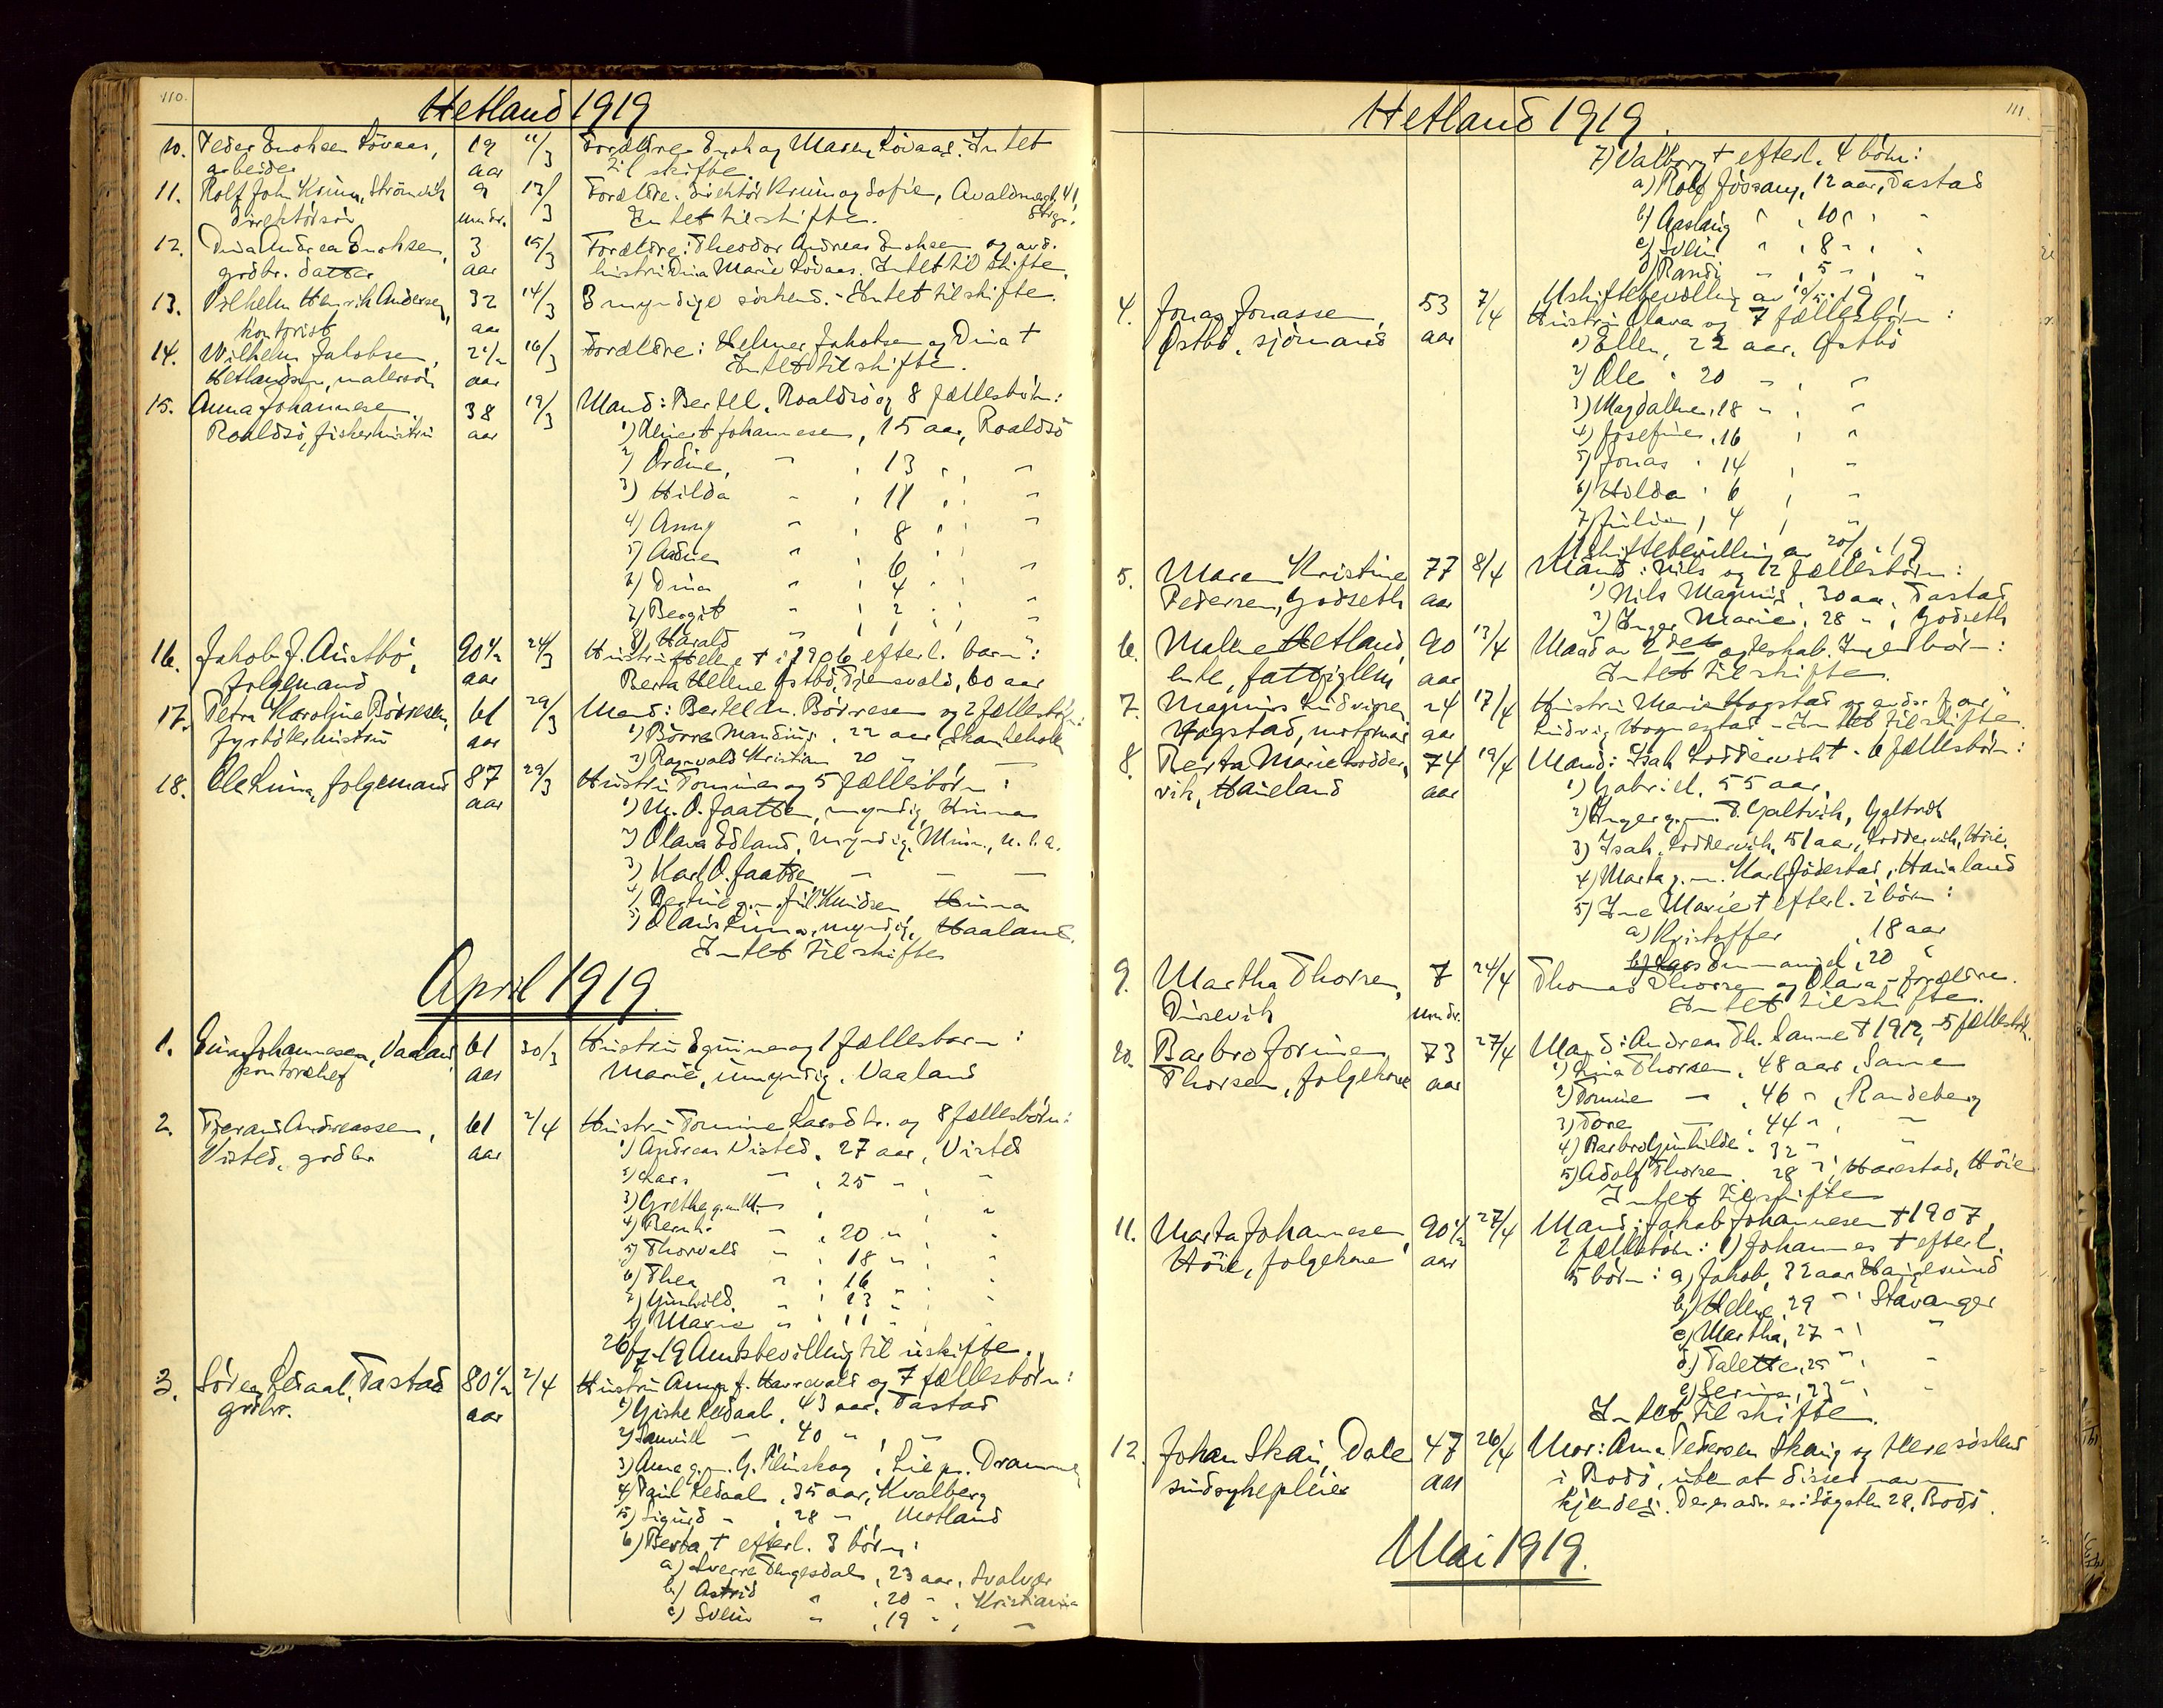 110.
Hetland 1919
10. Peder Enoksen Lövaas, 19 11/3 Forældre Enok og Maren Lövaas. Intet
arbeider aar til skifte.
11. Rolf John Krum, Strömvik 9 13/3 Forældre: direktör Krum og Sofie, Avaldsnesgt. 41,
direktörsön mndr. Intet til skifte. Stvgr.
12. Dina Andrea Enoksen, 3 15/3 Forældre: Theodor Andreas Enoksen og avd.
grdbr. datter aar hustru Dina Marie Lövaas. Intet til skifte.
13. Vilhelm Henrik Andersen, 32 14/3 3 myndige söskend. - Intet til skifte.
kontorist aar
14. Wilhelm Jakobsen, 2 1/2 16/3 Forældre: Helmer Jakobsen og Dina †
Hetlandsgn, malersön aar Intet til skifte.
15. Anna Johannesen, 38 19/3 Mand: Bertel. Roaldsö og 8 fællesbörn:
Roaldsö, fiskerhustru aar 1) Johannesen, 15 aar, Roaldsö
2) Ordine, " , 13 " , "
3) Hilda " , 11 " , "
4) Anny " , 8 " , "
5) " , 6 " , "
6) Dina " , 4 " , "
7) Bergit " , 2 " , "
8) Harald " , 1 " , "
16. Jakob J. Austbö, 90 1/2 24/3 Hustru Hellene † i 1906 efterl. barn:
folgemand aar Berta Hellene Östbö, Tjensvold, 60 aar
17. Petra Karoline Börresen, 61 29/3 Mand: Bertel M. Börresen og 2 fællesbörn:
fyrbökerhustru aar 1) Börre Mandius, 22 aar,
2) Ragnvald Kristian 20 " , "
18. Ole Luna, folgemand 87 29/3 Hustru Tomine og 5 fællesbörn:
aar 1) M. O. Jaatten, myndig, Hinna
2) Olava Edland, myndig, Minn., U.S.A.
3) Karl O. Jaatten " " "
4) Bertine g.m. Jul. Knudsen Hinna
5) Olaus Luna, myndig, Haaland.
Intet til skifte
April 1919.
1. Johannesen, Vaaland 61 30/3 Hustru Eguine og 1 fællesbarn:
kontorchef aar Marie, umyndig, Vaaland
2. Tjerand Andreassen, 61 2/4 Hustru Tomine Larsdtr. og 8 fællesbörn:
Visted, grdbr aar 1) Andreas Visted, 27 aar, Visted
2) Lars " , 25 " , "
3) Grethe g.m. , "
4) Bernh. " , 20 " , "
5) Thorvald " , 18 " , "
6) Thea " , 16 " , "
7) Gunhild " , 13 " , "
8) Marie " , 11 " , "
26/7-19 Amtsbevilling til uskifte.
3. Sören Ledaal, Tastad 80 1/2 2/4 Hustru Anna f. Harrevald og 7 fællesbörn:
grdbr. aar 1) Giske Ledaal, 43 aar, Tastad
2) " 40 " , "
3) Anna g.m. G. , Lie pr. Drammen
4) Paul Ledaal, 35 aar, Kvalberg
5) Sigurd " , 28 " , Motland
6) Berta † efterl. 3 börn:
a) Sverre Tengesdal, 23 aar, Svolvær
b) Astrid " , 20 " , Kristiania
c) Svein " , 19 " , "
111.
Hetland 1919.
7) Valborg † efterl. 4 börn:
a) Rolf Jössang, 12 aar, Tastad
b) Aaslaug " , 10 " , "
c) Svein " , 8 " , "
d) Randi " , 5 " , "
Uskiftebevilling av 10/5-19
4. Jonas Jonassen, 53 7/4 Hustru Olava og 7 fællesbörn:
Östbö, sjömand aar 1) Ellen, 22 aar, Östbö
2) Ole , 20 " , "
3) Magdalene, 18 " , "
4) Josefine, 16 , "
5) Jonas , 14 , "
6) Hilda , 6 , "
7) Julie , 4 , "
Uskiftebevilling av 20/6-19
5. Maren Kristine 77 8/4 Mand: Nils og 12 fællesbörn:
Pedersen, Godseth aar 1) Nils Magnus, 30 aar, Tastad
2) Inger Marie, 28 " , Godseth
6. Malene Hetland, 90 13/4 Mand av 2det egteskab. Ingen börn:
enke, fattiglem aar Intet til skifte.
7. Magnus Ludvigsen 24 17/4 Hustru Marie Hogstad og andr. far
Hogstad, motormand aar Ludvig Hognestad - Intet til skifte.
8. Berta Marie Lodder- 74 19/4 Mand: Isak Loddervik † - 6 fællesbörn:
vik, Haueland aar 1) Gabriel, 55 aar,
2) Inger g.m. T. Galtvik,
3) Isak Loddervik, 51 aar, Loddervik, Höie
4) Marta g.m. Karl Jödestad, Haualand
5) Ine Marie † efterl. 2 börn:
a) Kristoffer , 18 aar
b) , 20 "
9. Martha Thorsen, 7 24/4 Thomas Thorsen og Olava - forældre.
Dusevik mndr. Intet til skifte.
10. Barbro Jorine 73 27/4 Mand: Andreas Th. Sanne † 1912 - 5 fællesbörn.
Thorsen, folgekone aar 1) Thorsen, 48 aar, Sanne
2) Tomine " , 46 " , Randeberg
3) Tore " , 44 " , "
4) Barbro Gunhilde, 32 " "
5) Adolf Thorsen, 28 " , Harestad, Höie
Intet til skifte
11. Marta Johannesen 90 1/2 27/4 Mand: Jakob Johannesen † 1907,
Höie, folgekone aar 2 fællesbörn: 1) Johannes † efterl.
5 börn: a) Jakob, 32 aar Haugesund
b) Hellene, 29 " , Stavanger
c) Martha, 27 " , "
d) Talette, 25 " , "
e) Serine, 23 " , "
Intet til skifte.
12. Johan Skau, Dale 47 26/4 Mor: Anna Pedersen Skaug og flere söskend
sindsykepleier aar i Bodö, uten at disses navn
kjendes. Deres adr. er: Sögaten 28, Bodö.
Mai 1919.